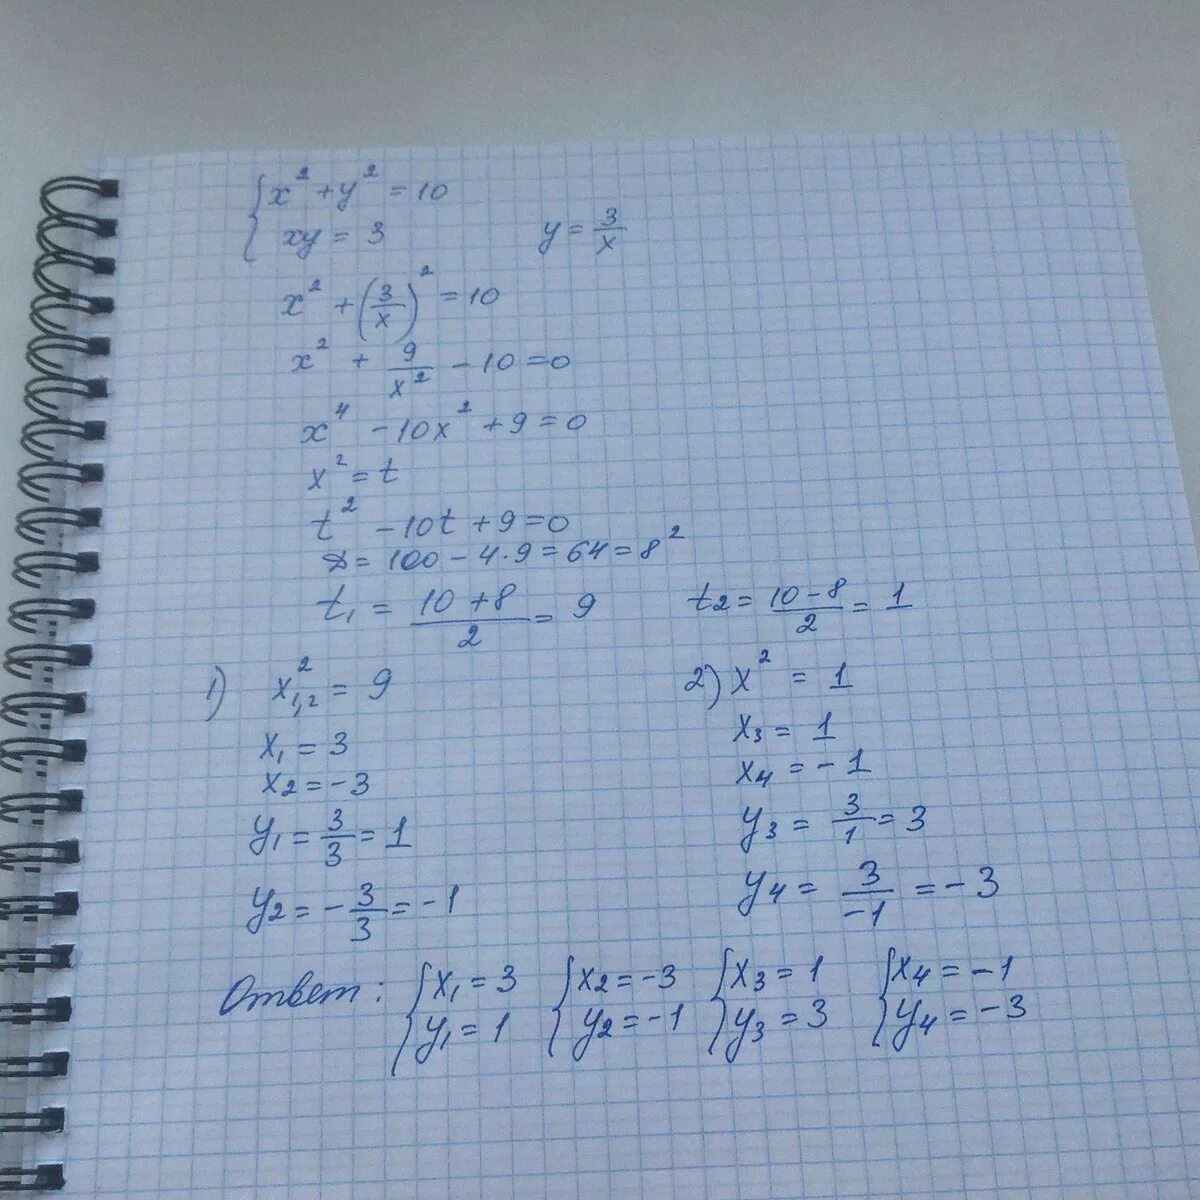 { x² + y² = 10
xy = 3    y = 3/x
x² + (3/x)² = 10
x² + 9/x² - 10 = 0
x⁴ - 10x² + 9 = 0
x² = t
t² - 10t + 9 = 0
D = 100 - 4·9 = 64 = 8²
t₁ = (10 + 8)/2 = 9    t₂ = (10 - 8)/2 = 1
1) x₁,₂² = 9
x₁ = 3
x₂ = -3
y₁ = 3/3 = 1
y₂ = -3/3 = -1
2) x² = 1
x₃ = 1
x₄ = -1
y₃ = 3/1 = 3
y₄ = 3/-1 = -3
Ответ: { x₁ = 3    { x₂ = -3    { x₃ = 1    { x₄ = -1
y₁ = 1    y₂ = -1    y₃ = 3    y₄ = -3